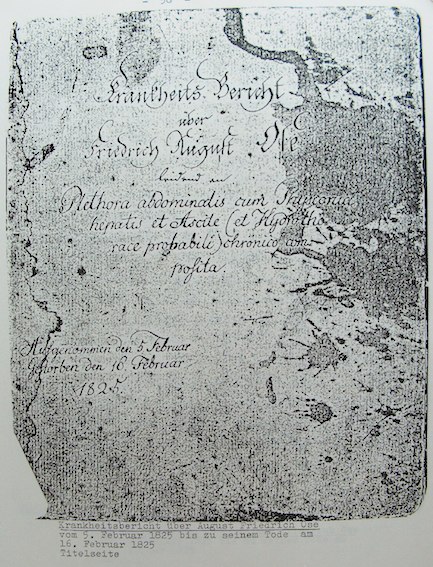 Krankheits-Bericht
über
Friedrich August Ose
leidend an
Plethora abdominalis cum Physconia
hepatis et Ascite (et Hydrotho
race probabili) chronico com
posita.
Aufgenommen den 5 Februar
Gestorben den 16. Februar
1825.
Krankheitsbericht über August Friedrich Ose
vom 5. Februar 1825 bis zu seinem Tode am
16. Februar 1825
Titelseite